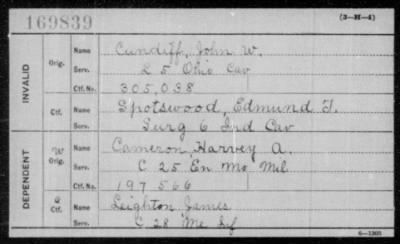 169839 (3-H-4)
INVALID
Orig. Name Cundiff, John W.
Serv. 25 Ohio Cav
Ctf. No. 305,038
Ctf. Name Spotswood, Edmund T.
Serv. Surg 6 Ind Cav
DEPENDENT
Orig. Name Cameron, Harvey A.
Serv. C 25 En Mo Mil
Ctf. No. 197566
Ctf. Name Leighton James
Serv. C 28 Me Inf
6-1305